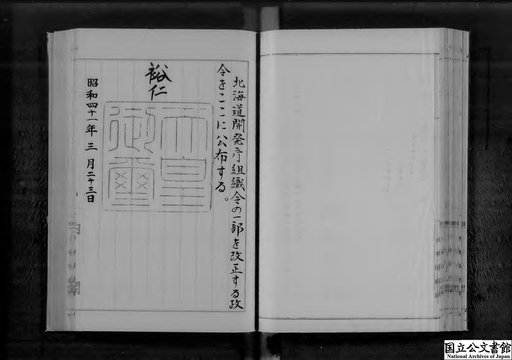 北海道開発庁組織令の一部を改正する政
令をここに公布する。
裕仁
天皇
御璽
昭和四十一年三月二十三日
国立公文書館
National Archives of Japan